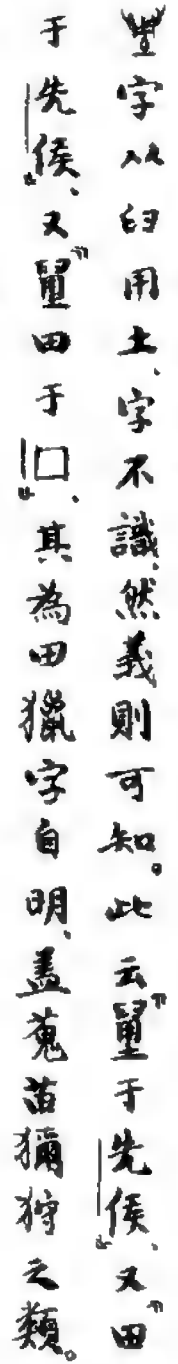 字从臼用土、字不識、然義則可知。此云“于先侯”、又“田
于先侯”、又“田于□”、其為田獵字自明、蓋蒐苗獮狩之類。